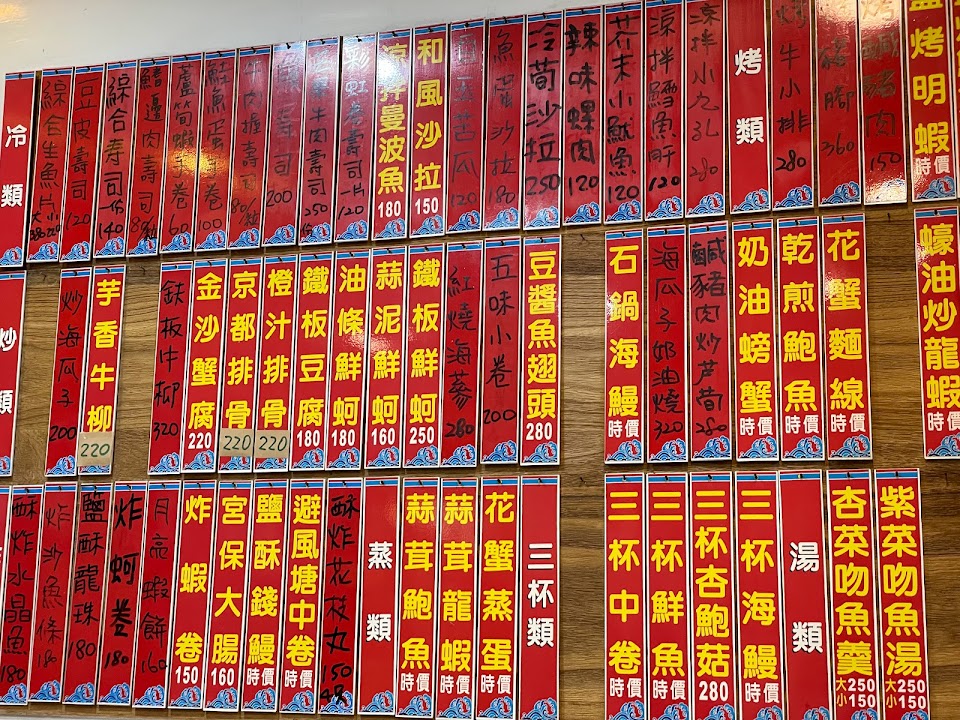 冷類
綜合生魚片 大 小
豆皮壽司 120
綜合壽司 一份 140
鰭邊肉壽司
蘆筍蝦手卷 60
鮭魚蛋手卷 100
牛肉握壽司 80/粒
壽司 200
牛肉壽司 250
彩虹卷 一片 120
涼拌曼波魚 180
和風沙拉 150
苦瓜 120
魚蛋沙拉 180
冷筍沙拉 250
辣味螺肉 120
芥末小魷魚 120
涼拌鱈魚肝 120
涼拌小九孔 280
烤類
烤牛小排 280
豬腳 360
鹹豬肉 150
鹽烤明蝦 時價
炒類
炒海瓜子 200
芋香牛柳 220
鉄板牛柳 320
金沙蟹腐 220
京都排骨 220
橙汁排骨 220
鐵板豆腐 180
油條鮮蚵 180
蒜泥鮮蚵 160
鐵板鮮蚵 250
紅燒海蔘 280
五味小卷 200
豆醬魚翅頭 280
石鍋海鰻 時價
海瓜子奶油燒 320
鹹豬肉炒芦筍 250
奶油螃蟹 時價
乾煎鮑魚 時價
花蟹麵線 時價
蠔油炒龍蝦 時價
酥炸水晶魚 180
炸沙魚條 180
鹽酥龍珠 180
炸蚵卷 180
月亮蝦餅 160
炸蝦卷 150
宮保大腸 160
鹽酥錢鰻 時價
避風塘中卷 時價
酥炸花枝丸 150
蒸類
蒜茸鮑魚 時價
蒜茸龍蝦 時價
花蟹蒸蛋 時價
三杯類
三杯中卷 時價
三杯鮮魚 時價
三杯杏鮑菇 280
三杯海鰻 時價
湯類
杏菜吻魚羹 大250 小150
紫菜吻魚湯 大250 小150